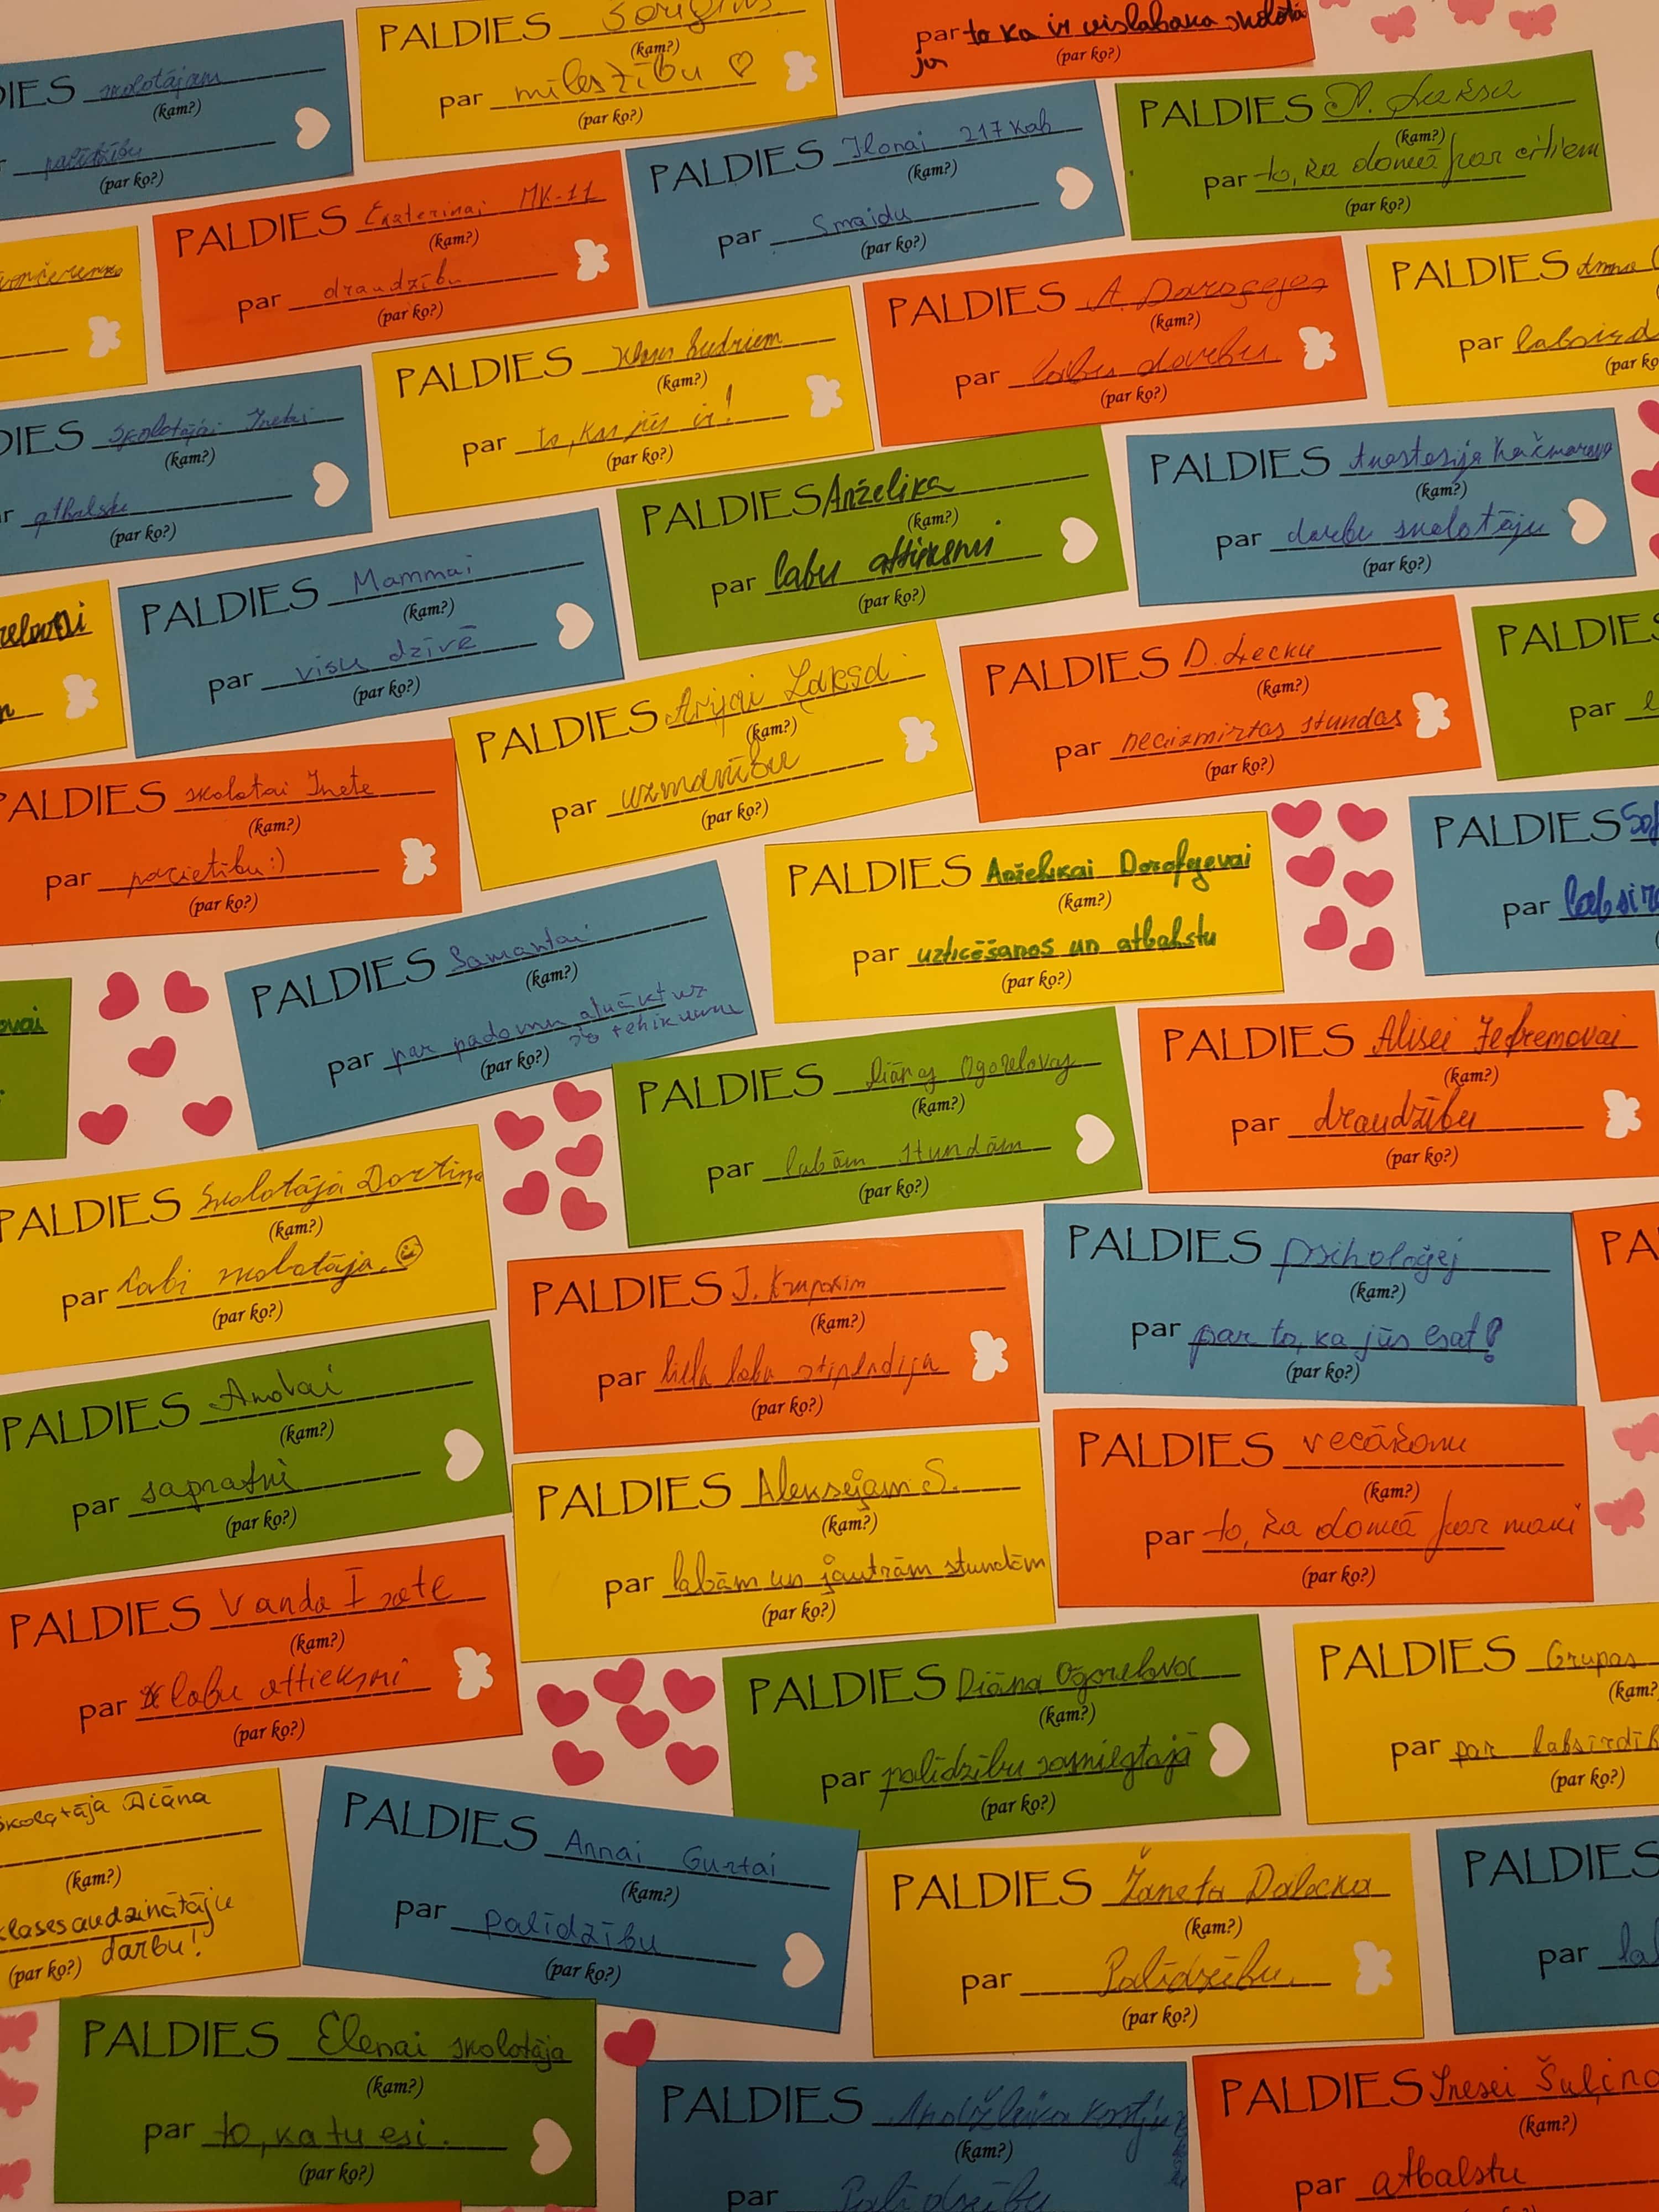 PALDIES
(kam?)
par mīlestību ♡
(par ko?)
par to ka ir vislabākā skolotā
jos
(par ko?)
DIES skolotājam
(kam?)
palīdzību
(par ko?)
PALDIES Ilonai 217 kab
(kam?)
par Smaidu
(par ko?)
PALDIES
(kam?)
par to, ka domā par citiem
(par ko?)
PALDIES Ekaterinai MK-11
(kam?)
par draudzību
(par ko?)
PALDIES Klases biedriem
(kam?)
par to, kas jūs ir!
(par ko?)
PALDIES A.
(kam?)
par labu darbu
(par ko?)
PALDIES Anna
par labsird
(par ko
DIES Skolotājai Inetai
(kam?)
r atbalstu
(par ko?)
PALDIES Anželika
(kam?)
par labu attieksmi
(par ko?)
PALDIES Anastasija
(kam?)
par darbu skolotāju
(par ko?)
PALDIES Mammai
(kam?)
par visu dzīvē
(par ko?)
PALDIES Arijai
(kam?)
par uzmanību
(par ko?)
PALDIES D. Lecku
(kam?)
par neaizmirtas stundas
(par ko?)
PALDIES
par
PALDIES skolotai Inete
(kam?)
par pacietību :)
(par ko?)
PALDIES Anželikai Dorofejevai
(kam?)
par uzticēšanos un atbalstu
(par ko?)
PALDIES Sof
par labsird
PALDIES Samantai
(kam?)
par par padomu atnākt uz
šo tehikumu
(par ko?)
PALDIES Diānaj Ogorelovaj
(kam?)
par labām stundām
(par ko?)
PALDIES Alisei Jefremovai
(kam?)
par draudzību
(par ko?)
PALDIES Skolotāja Dartiņa
(kam?)
par Labi skolotāja.
(par ko?)
PALDIES J.
(kam?)
par liela laba stipendija
(par ko?)
PALDIES psiholoģej
(kam?)
par par to, ka jūs esat!
(par ko?)
PA
PALDIES
(kam?)
par sapratni
(par ko?)
PALDIES Aleksejam S.
(kam?)
par labām un jautrām stundām
(par ko?)
PALDIES vecākonu
(kam?)
par to, ka domā par mani
(par ko?)
PALDIES Vanda
(kam?)
par labu attieksmi
(par ko?)
PALDIES Diāna Ogorelova
(kam?)
par palīdzību sasniegtajā
(par ko?)
PALDIES Grupas
(kam?
par par labsirdīb
(par ko?)
Skolotāja Diāna
(kam?)
klases audzinātāju
(par ko?) darbu!
PALDIES Annai Gurtai
(kam?)
par Palīdzību
(par ko?)
PALDIES Žaneta Dalecka
(kam?)
par Palīdzību.
(par ko?)
PALDIES
par lab
PALDIES Elenai skolotāja
(kam?)
par to, ka tu esi.
(par ko?)
PALDIES
(kam?)
par Palīdzību
PALDIES Inesei Šuļina
(kam?)
par atbalstu